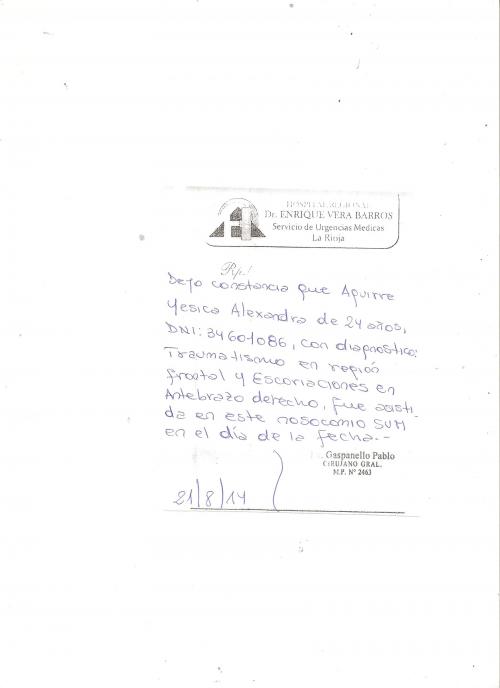 HOSPITAL REGIONAL
Dr. ENRIQUE VERA BARROS
Servicio de Urgencias Medicas
La Rioja
Rp./
Dejo constancia que Aguirre
Yesica Alexandra de 24 años,
DNI: 34601086, con diagnostico:
Traumatismo en región
frontal y Escoriaciones en
Antebrazo derecho, fue asisti-
da en este nosocomio SUM
en el día de la fecha.-
Gaspanello Pablo
CIRUJANO GRAL.
M.P. Nº 2463
21/8/14